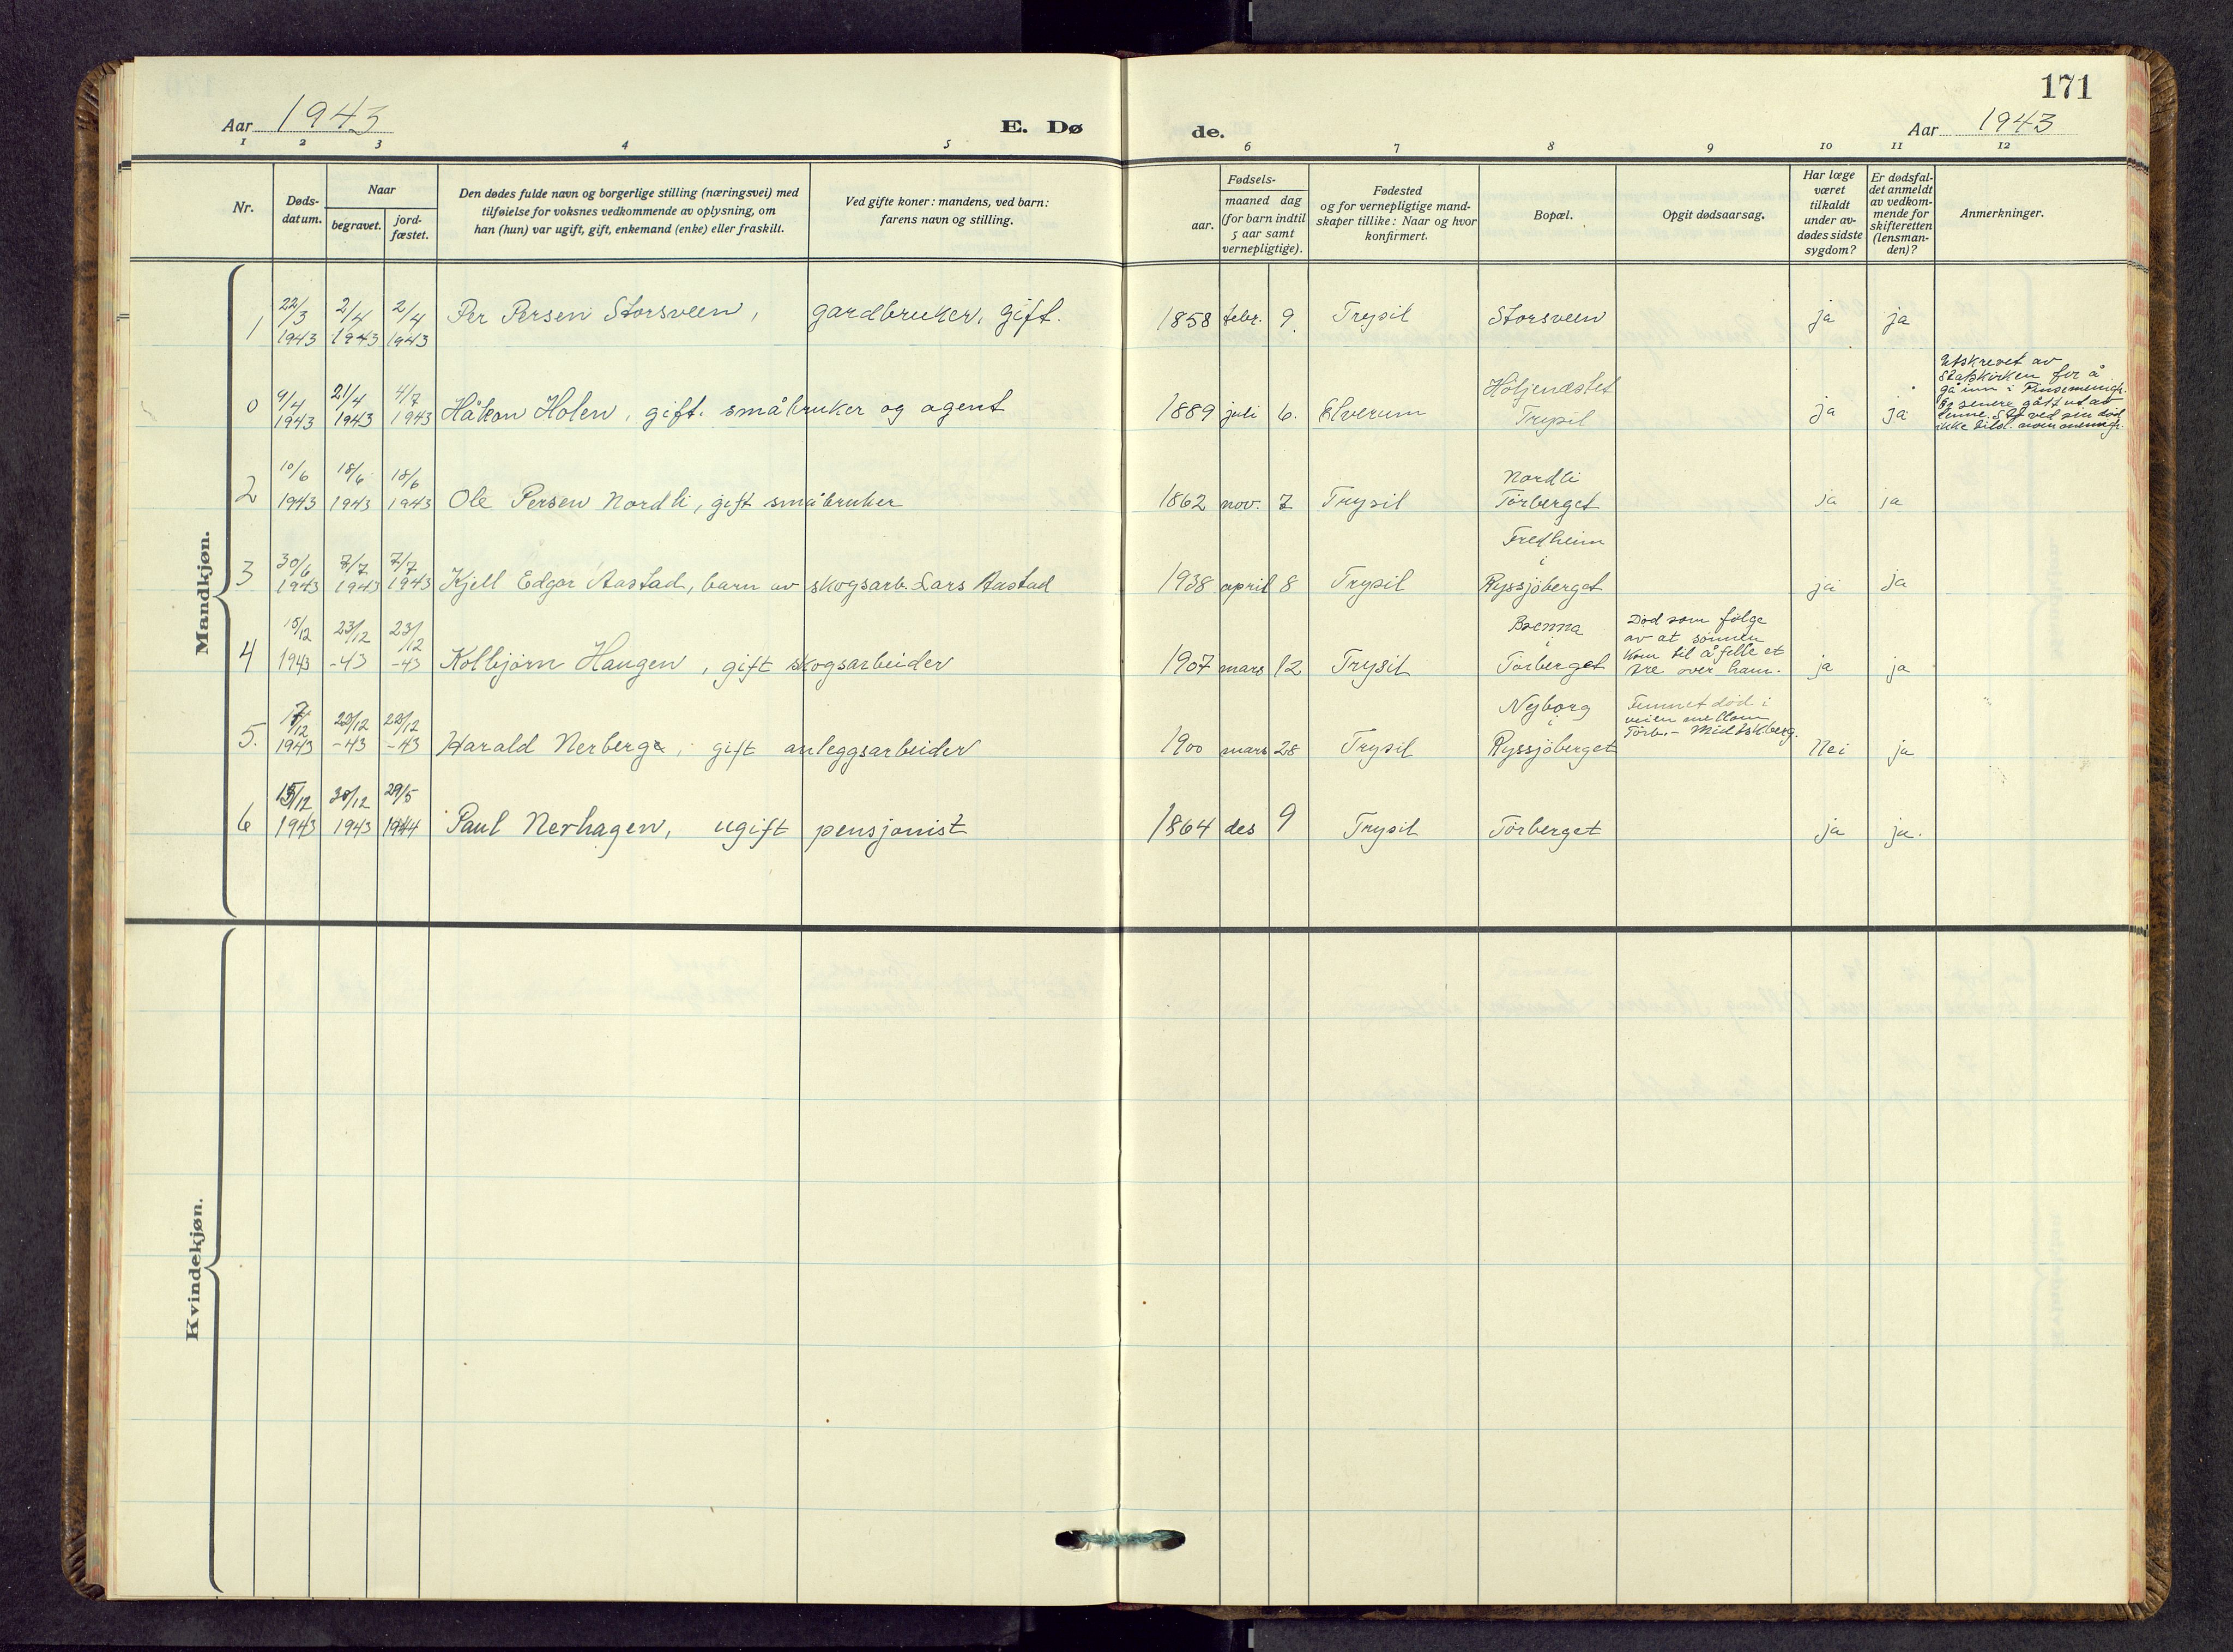 171
Aar 1943 E. Dø de. Aar 1943
1 2 3 4 5 6 7 8 9 10 11 12
Nr.
Døds-
datum.
Naar
begravet.
jord-
fæstet.
Den dødes fulde navn og borgerlige stilling (næringsvei) med
tilføielse for voksnes vedkommende av oplysning, om
han (hun) var ugift, gift, enkemand (enke) eller fraskilt.
Ved gifte koner: mandens, ved barn:
farens navn og stilling.
Fødsels-
aar.
maaned dag
(for barn indtil
5 aar samt
vernepligtige).
Fødested
og for vernepligtige mand-
skaper tillike: Naar og hvor
konfirmert.
Bopæl.
Opgit dødsaarsag.
Har læge
været
tilkaldt
under av-
dødes sidste
sygdom?
Er dødsfal-
det anmeldt
av vedkom-
mende for
skifteretten
(lensman-
den)?
Anmerkninger.
Mandkjøn.
1 22/3 1943 2/4 1943 2/4 1943 Per Persen Storsveen, gardbruker, gift. 1858 febr. 9. Trysil Storsveen ja ja
0 9/4 1943 21/4 1943 4/7 1943 Håkon Holen, gift. småbruker og agent 1889 juli 6. Elverum Höljendstet Trysil ja ja
Utskrevet av
Statskirken for å
gå inn i Pinsemenigh.
senere gått ut av
denne. ved sin död
ikke
2 10/6 1943 18/6 1943 18/6 1943 Ole Persen Nordli, gift småbruker 1862 nov. 7 Trysil Nordli Törberget ja ja
3 30/6 1943 7/7 1943 7/7 1943 Kjell Edgar Aastad, barn av skogsarb. Lars Aastad 1938 april 8 Trysil Fredheim i Ryssjöberget ja ja
4 15/12 1943 23/12 -43 23/12 -43 Kolbjörn Haugen, gift skogsarbeider 1907 mars 12 Trysil Brenna i Törberget
Död som følge
av at sönnen
kom til å felle et
tre over ham.
ja ja
5. 17/12 1943 22/12 -43 22/12 -43 Harald Nerberg, gift anleggsarbeider 1900 mars 28 Trysil Nyborg i Ryssjöberget
Funnet död i
veien mellom
Törb. - Midtskberg.
Nei ja
6 15/12 1943 30/12 1943 29/5 1944 Paul Nerhagen, ugift pensjonist 1864 des 9 Trysil Törberget ja ja.
Kvindekjøn.